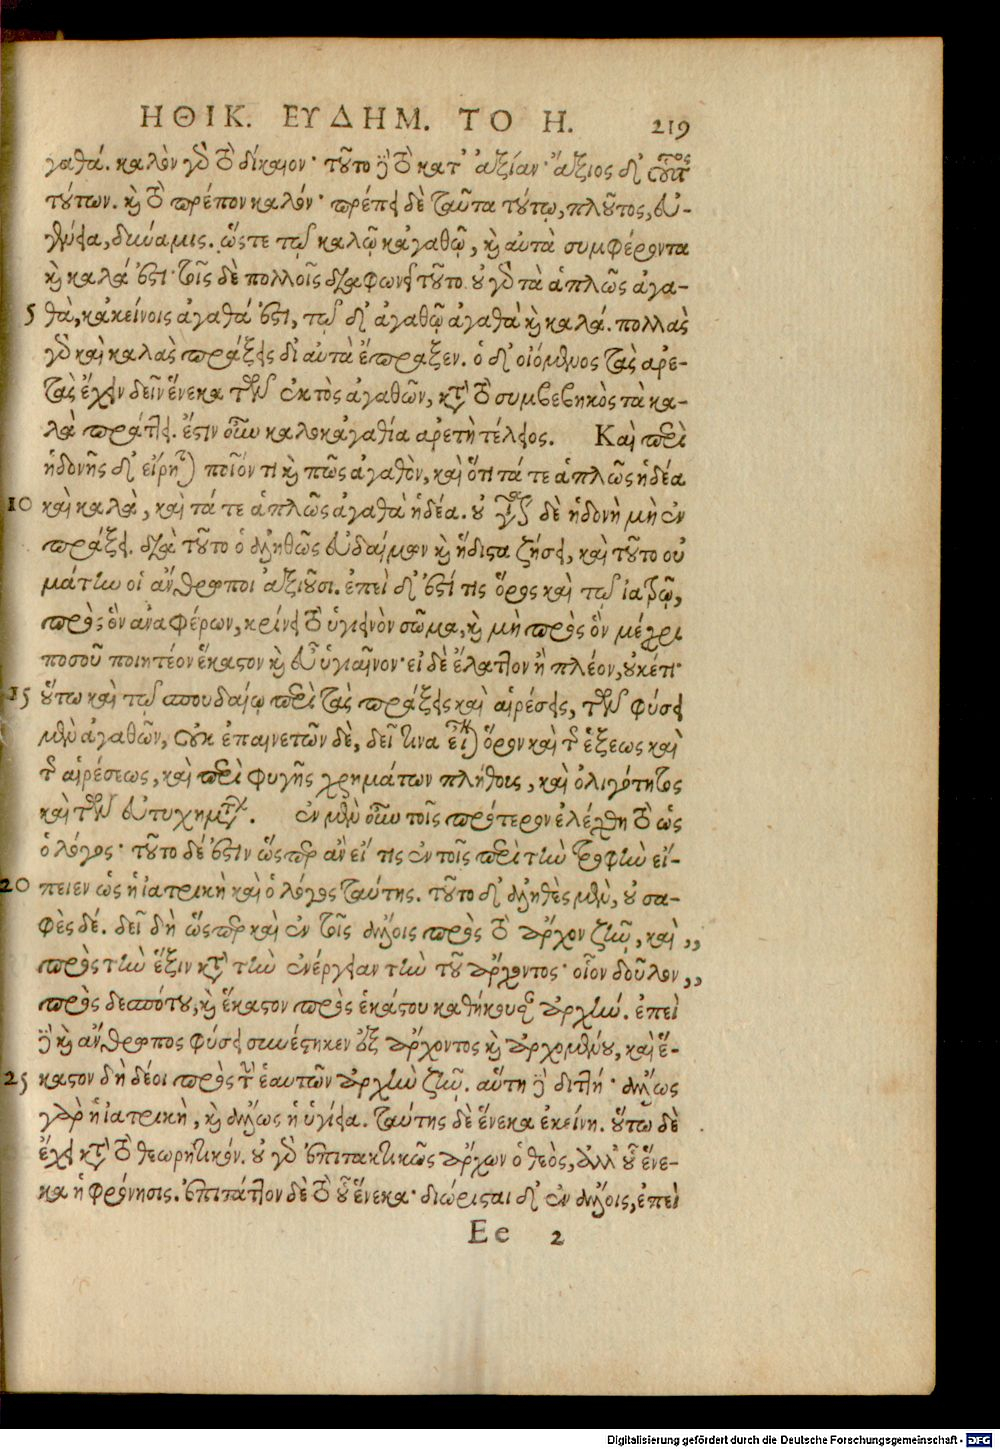 ΗΘΙΚ. ΕΥΔΗΜ. ΤΟ Η. 219
γαθά. καλὸν γὰρ τὸ δίκαιον· τοῦτο δὲ τὸ κατ' ἀξίαν· ἄξιος δ' οὗτος
τούτων. καὶ τὸ πρέπον καλόν· πρέπει δὲ ταῦτα τούτῳ, πλοῦτος, εὐ-
γένεια, δύναμις. ὥστε τῷ καλῷ κἀγαθῷ, καὶ αὐτὰ συμφέροντα
καὶ καλά ἐστι· τοῖς δὲ πολλοῖς διαφωνεῖ τοῦτο. οὐ γὰρ τὰ ἁπλῶς ἀγα-
5 θὰ, κἀκείνοις ἀγαθά ἐστι, τῷ δ' ἀγαθῷ ἀγαθὰ καὶ καλά. πολλὰς
γὰρ καὶ καλὰς πράξεις δι' αὐτὰ ἔπραξεν. ὁ δ' οἰόμενος τὰς ἀρε-
τὰς ἔχειν δεῖν ἕνεκα τῶν ἐκτὸς ἀγαθῶν, κατὰ τὸ συμβεβηκὸς τὰ κα-
λὰ πράττει. ἔστιν οὖν καλοκἀγαθία ἀρετὴ τέλειος. Καὶ περὶ
ἡδονῆς δ' εἴρηται ποῖόν τι καὶ πῶς ἀγαθὸν, καὶ ὅτι τά τε ἁπλῶς ἡδέα
10 καὶ καλὰ, καὶ τά τε ἁπλῶς ἀγαθὰ ἡδέα. οὐ γίνεται δὲ ἡδονὴ μὴ ἐν
πράξει. διὰ τοῦτο ὁ ἀληθῶς εὐδαίμων καὶ ἥδιστα ζήσει, καὶ τοῦτο οὐ
μάτην οἱ ἄνθρωποι ἀξιοῦσι. ἐπεὶ δ' ἐστί τις ὅρος καὶ τῷ ἰατρῷ,
πρὸς ὃν ἀναφέρων, κρίνει τὸ ὑγιεινὸν σῶμα, καὶ μὴ πρὸς ὃν μέχρι
ποσοῦ ποιητέον ἕκαστον καὶ εὖ ὑγιαῖνον· εἰ δὲ ἔλαττον ἢ πλέον, οὐκέτι·
15 οὕτω καὶ τῷ σπουδαίῳ περὶ τὰς πράξεις καὶ αἱρέσεις, τῶν φύσει
μὲν ἀγαθῶν, οὐκ ἐπαινετῶν δὲ, δεῖ τινα εἶναι ὅρον καὶ τῆς ἕξεως καὶ
τῆς αἱρέσεως, καὶ περὶ φυγῆς χρημάτων πλήθους, καὶ ὀλιγότητος
καὶ τῶν εὐτυχημάτων. ἐν μὲν οὖν τοῖς πρότερον ἐλέχθη τὸ ὡς
ὁ λόγος· τοῦτο δέ ἐστιν ὥσπερ ἂν εἴ τις ἐν τοῖς περὶ τὴν τροφὴν εἴ-
20 πειεν ὡς ἡ ἰατρικὴ καὶ ὁ λόγος ταύτης. τοῦτο δ' ἀληθὲς μὲν, οὐ σα-
φὲς δέ. δεῖ δὴ ὥσπερ καὶ ἐν τοῖς ἄλλοις πρὸς τὸ ἄρχον ζῆν, καὶ ,,
πρὸς τὴν ἕξιν κατὰ τὴν ἐνέργειαν τὴν τοῦ ἄρχοντος· οἷον δοῦλον ,,
πρὸς δεσπότου, καὶ ἕκαστον πρὸς ἑκάστου καθήκουσαν ἀρχήν. ἐπεὶ
δὲ καὶ ἄνθρωπος φύσει συνέστηκεν ἐξ ἄρχοντος καὶ ἀρχομένου, καὶ ἕ-
25 καστον δὴ δέοι πρὸς τὴν ἑαυτῶν ἀρχὴν ζῆν. αὕτη δὲ διττή· ἄλλως
γὰρ ἡ ἰατρικὴ, καὶ ἄλλως ἡ ὑγίεια. ταύτης δὲ ἕνεκα ἐκείνη. οὕτω δὲ
ἔχει κατὰ τὸ θεωρητικόν. οὐ γὰρ ἐπιτακτικῶς ἄρχων ὁ θεὸς, ἀλλ' οὗ ἕνε-
κα ἡ φρόνησις. ἐπιτάττον δὲ τὸ οὗ ἕνεκα· διώρισται δ' ἐν ἄλλοις, ἐπεὶ
Ee 2
Digitalisierung gefördert durch die Deutsche Forschungsgemeinschaft - DFG